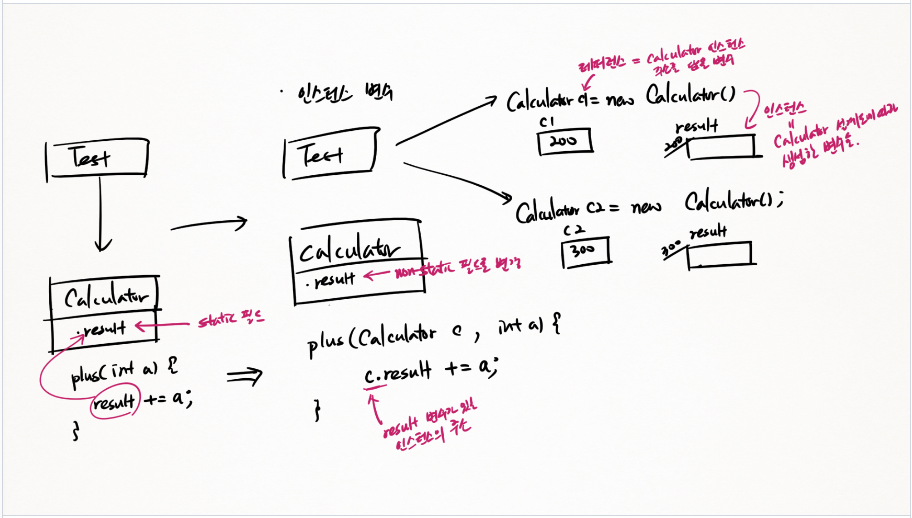 Test
Calculator
· result ← static 필드
plus(int a) {
result += a;
}
· 인스턴스 변수
Test
Calculator
· result ← non-static 필드로 변경
plus(Calculator c, int a) {
c.result += a;
}
result 변수가 있는
인스턴스의 주소
레퍼런스 = Calculator 인스턴스
주소를 담은 변수
Calculator c1 = new Calculator()
c1
200
result
200
인스턴스
"
Calculator 설계도에 따라
생성한 변수들.
Calculator c2 = new Calculator();
c2
300
result
300